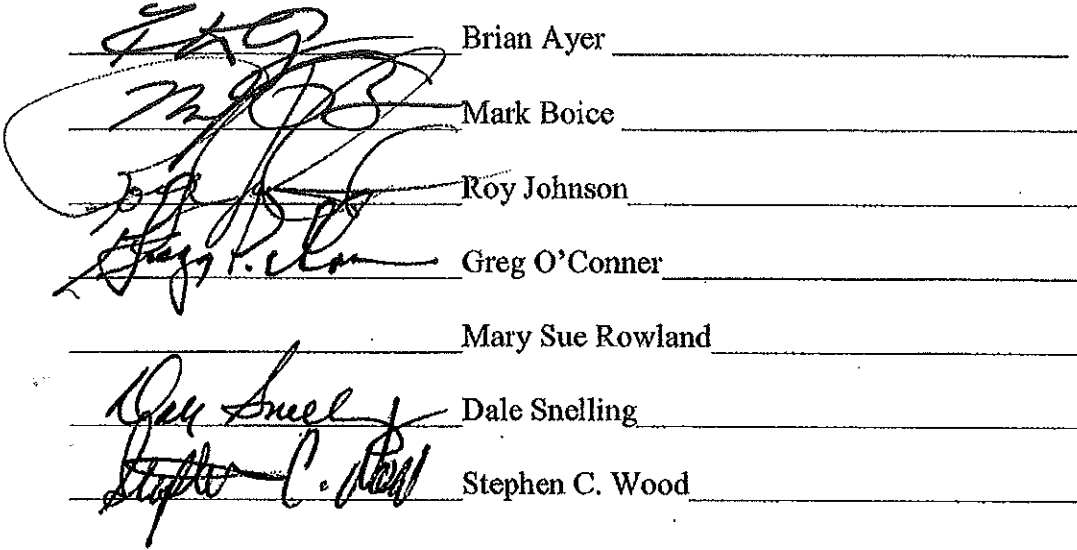 Brian Ayer
Mark Boice
Roy Johnson
Gregg P. O'Connor Greg O'Conner
Mary Sue Rowland
Dale Snelling Dale Snelling
Stephen C. Wood Stephen C. Wood